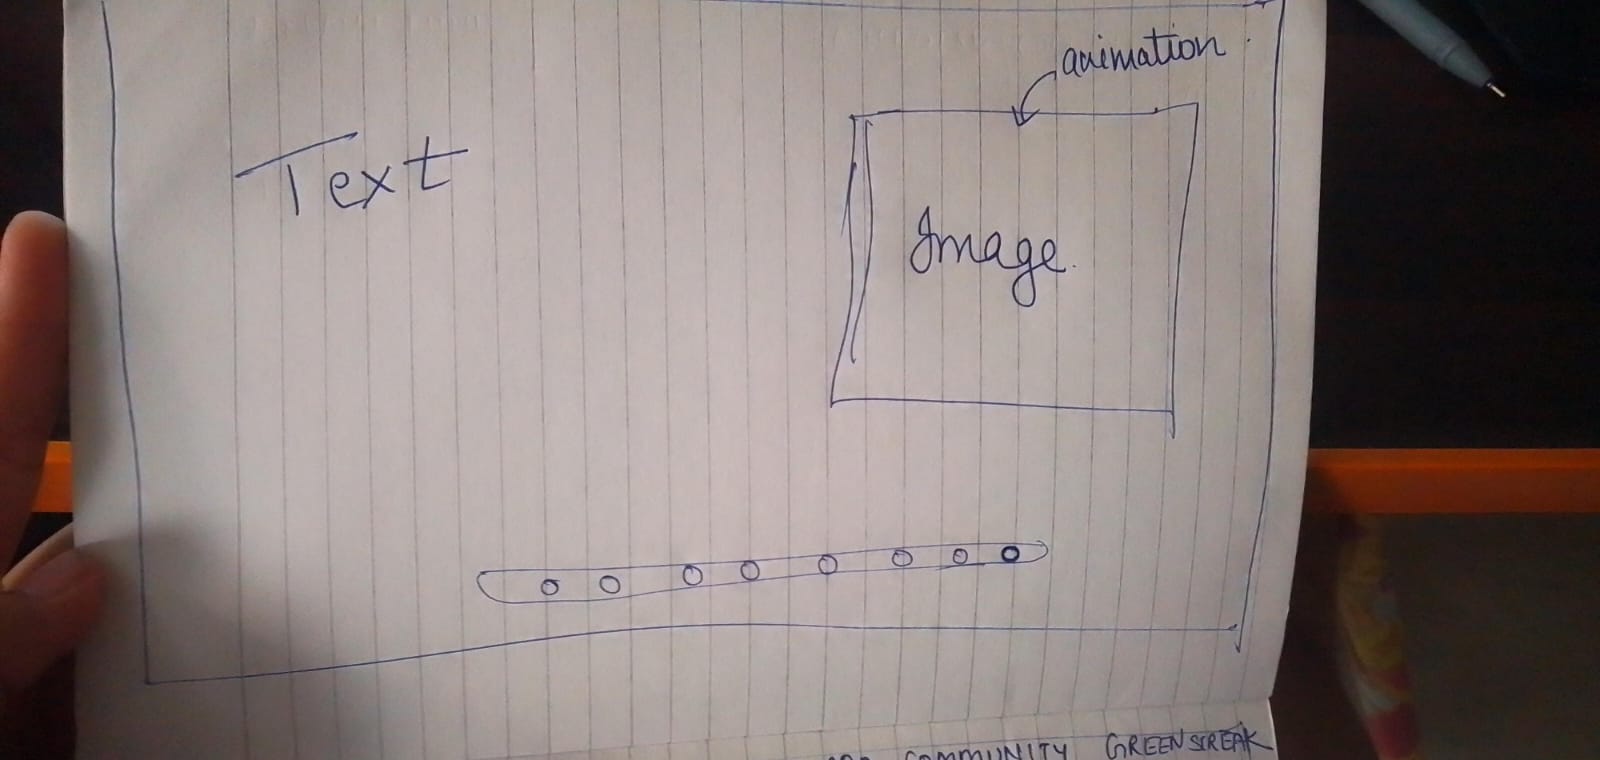 animation
Text
Image.
COMMUNITY GREENSCREAK